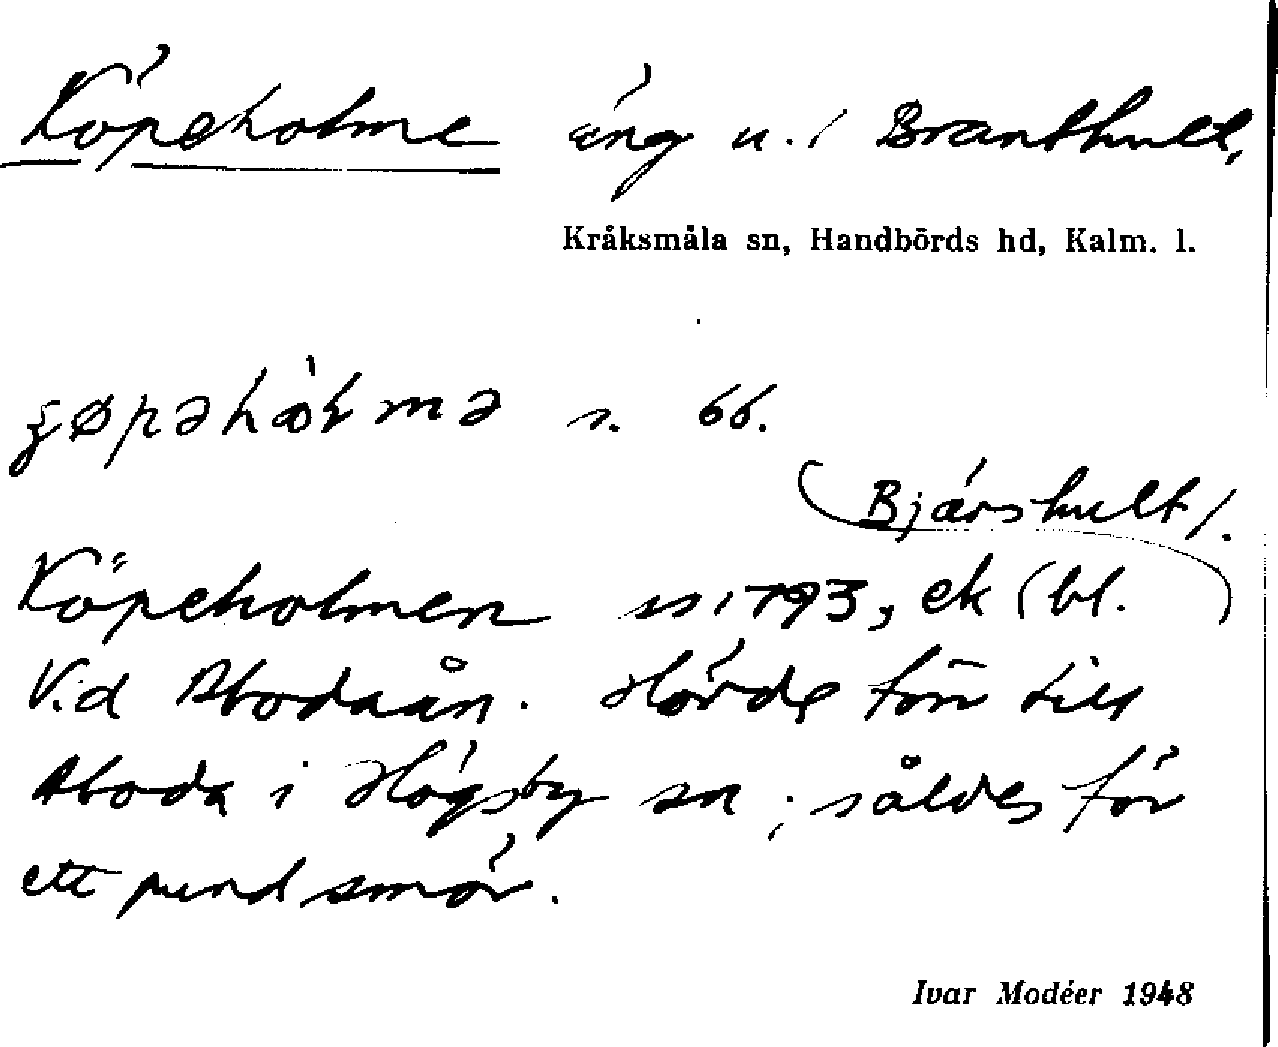 Köpeholme äng u. / Branthult,
Kråksmåla sn, Handbörds hd, Kalm. l.
s. 66.
Bjärshult /.
Köpeholmen 1793, ek (bl. )
Vid Abodaån. Hörde förr till
Aboda i Högsby sn; såldes för
ett pund smör.
Ivar Modéer 1948